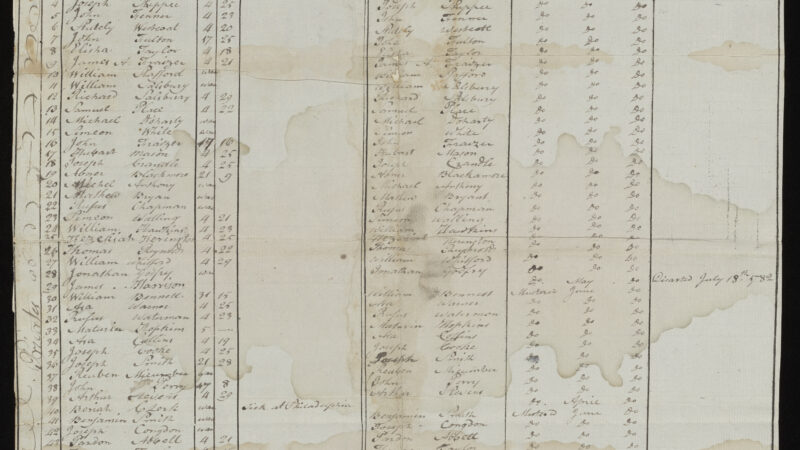 4 Joseph Shippee 4 25 Joseph Shippee do do do
5 John Trenner 4 23 John Trenner do do do
6 Westcoat 4 20 Westcott do do do
7 John Tuiton 17 25 Tuiton do do do
8 Elisha Taylor 4 18 Elisha Taylor do do do
9 James A. Fraizer 4 21 James A. Fraizer do do do
10 William Stafford war William do do do
11 William Salisbury war William Salsbury do do do
12 Richard Salisbury 4 20 Richard Salsbury do do do
13 Samuel Place 4 22 Samuel Place do do do
14 Michael Doharty war Michael Doharty do do do
15 Simeon White war Simeon White do do do
16 John Fraizer 19 16 John Fraizer do do do
17 Mason 4 25 Mason do do do
18 Joseph Crandle 4 25 Joseph Crandle do do do
19 Abner Blackmore 21 9 Abner Blackamore do do do
20 Michel Anthony war Michael Anthony do do do
21 Mathew Bryan war Mathew Bryant do do do
22 Rufus Chapman war Rufus Chapman do do do
23 Simeon Walling 4 21 Simeon Walling do do do
24 William Hawkins 4 23 William Hawkins do do do
25 Hezekiah 4 25 do do do
26 Thomas 22 Thomas do do do
27 William 4 29 William do do do
28 Jonathan war Jonathan Godfry do do do
29 James Harrison do May do Deserted July 18th 1782
30 William Bennett 31 15 William Bennett Mustered June do
31 Asa 4 25 Asa do do do
32 Rufus Waterman 4 23 Rufus Waterman do do do
33 Maturin Hopkins 5 — Maturin Hopkins do do do
34 Asa Collins 4 19 Asa Collins do do do
35 Joseph Cooke 4 25 Joseph Cooke do do do
36 Joseph Smith 21 28 Joseph Smith do do do
37 Reuben war Reuben do do do
38 John Torry 17 8 John Torry do do do
39 Arthur Stevens 4 29 Arthur Stevens do do do
40 Beriah Clark war Sick at Philadelphia do April do
41 Benjamin Smith war Benjamin Smith Mustered June do
42 Joseph Congdon war Joseph Congdon do do do
43 Pardon Abbett 4 21 Pardon Abbett do do do
Taylor
Privates